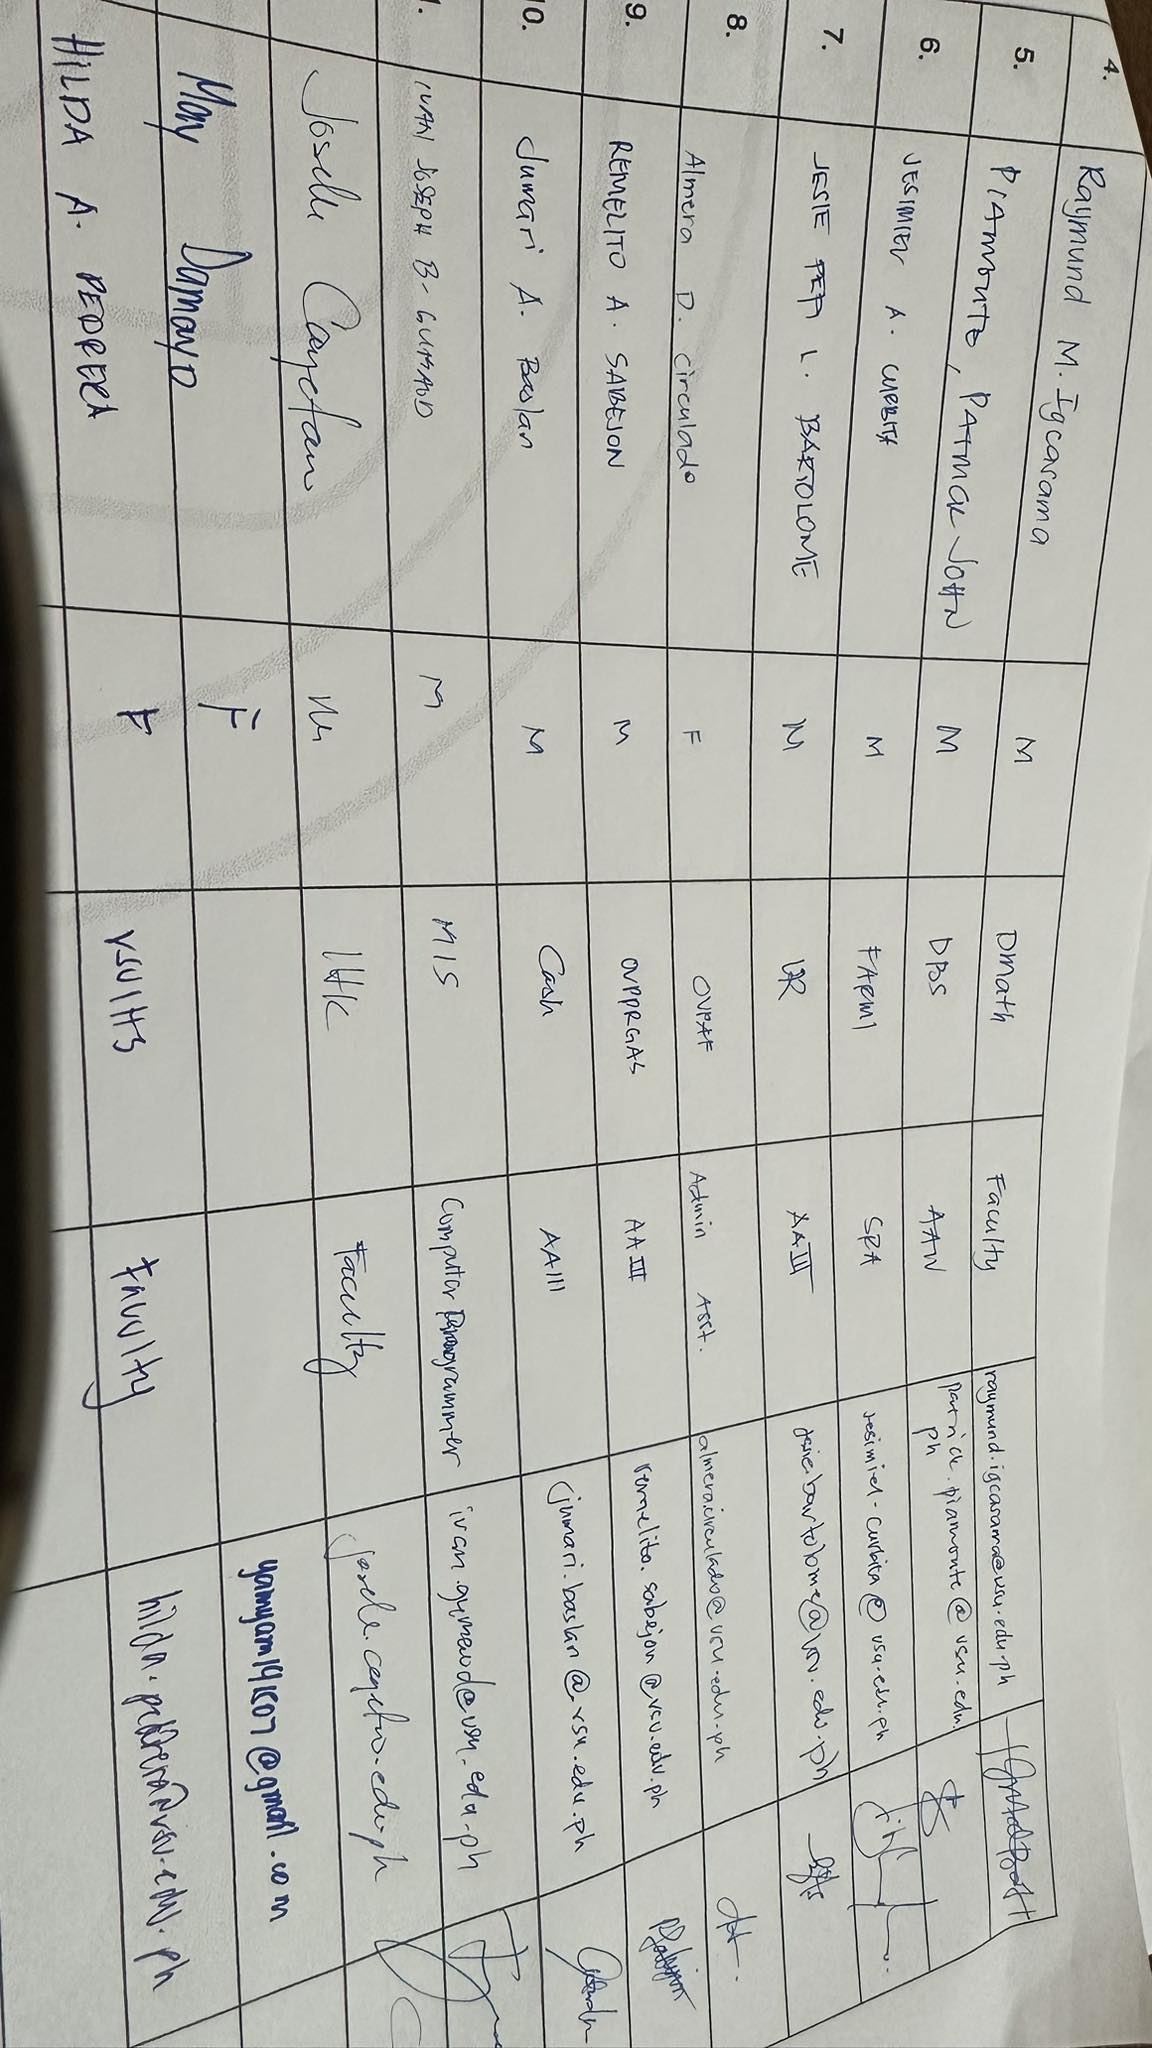 4. Raymund M. Igcarama M Dmath Faculty raymund.igcarama@vsu.edu.ph
5. PIAMONTE, PATRICK JOHN M DBS AAIV patrick.piamonte@vsu.edu.
ph
6. JESIMIEL A. CURBITA M FARMI SRA jesimiel.curbita@vsu.edu.ph
7. JESIE L. BARTOLOME M AAIII jesie.bartolome@vsu.edu.ph
8. Almera D. circulado F OVPAF Admin Asst. almera.circulado@vsu.edu.ph
9. REMELITO A. SABEJON M OVPPRGAS AAIII remelito.sabejon@vsu.edu.ph
10. Jumari A. Baslan M Cash AAIII jumari.baslan@vsu.edu.ph
1. IVAN JOSEPH B. M MIS Computer Programmer
M IHK Faculty
May Damayo F @gmail.com
HILDA A. PEDRERA F VSUIHS Faculty hilda.pedrera@vsu.edu.ph